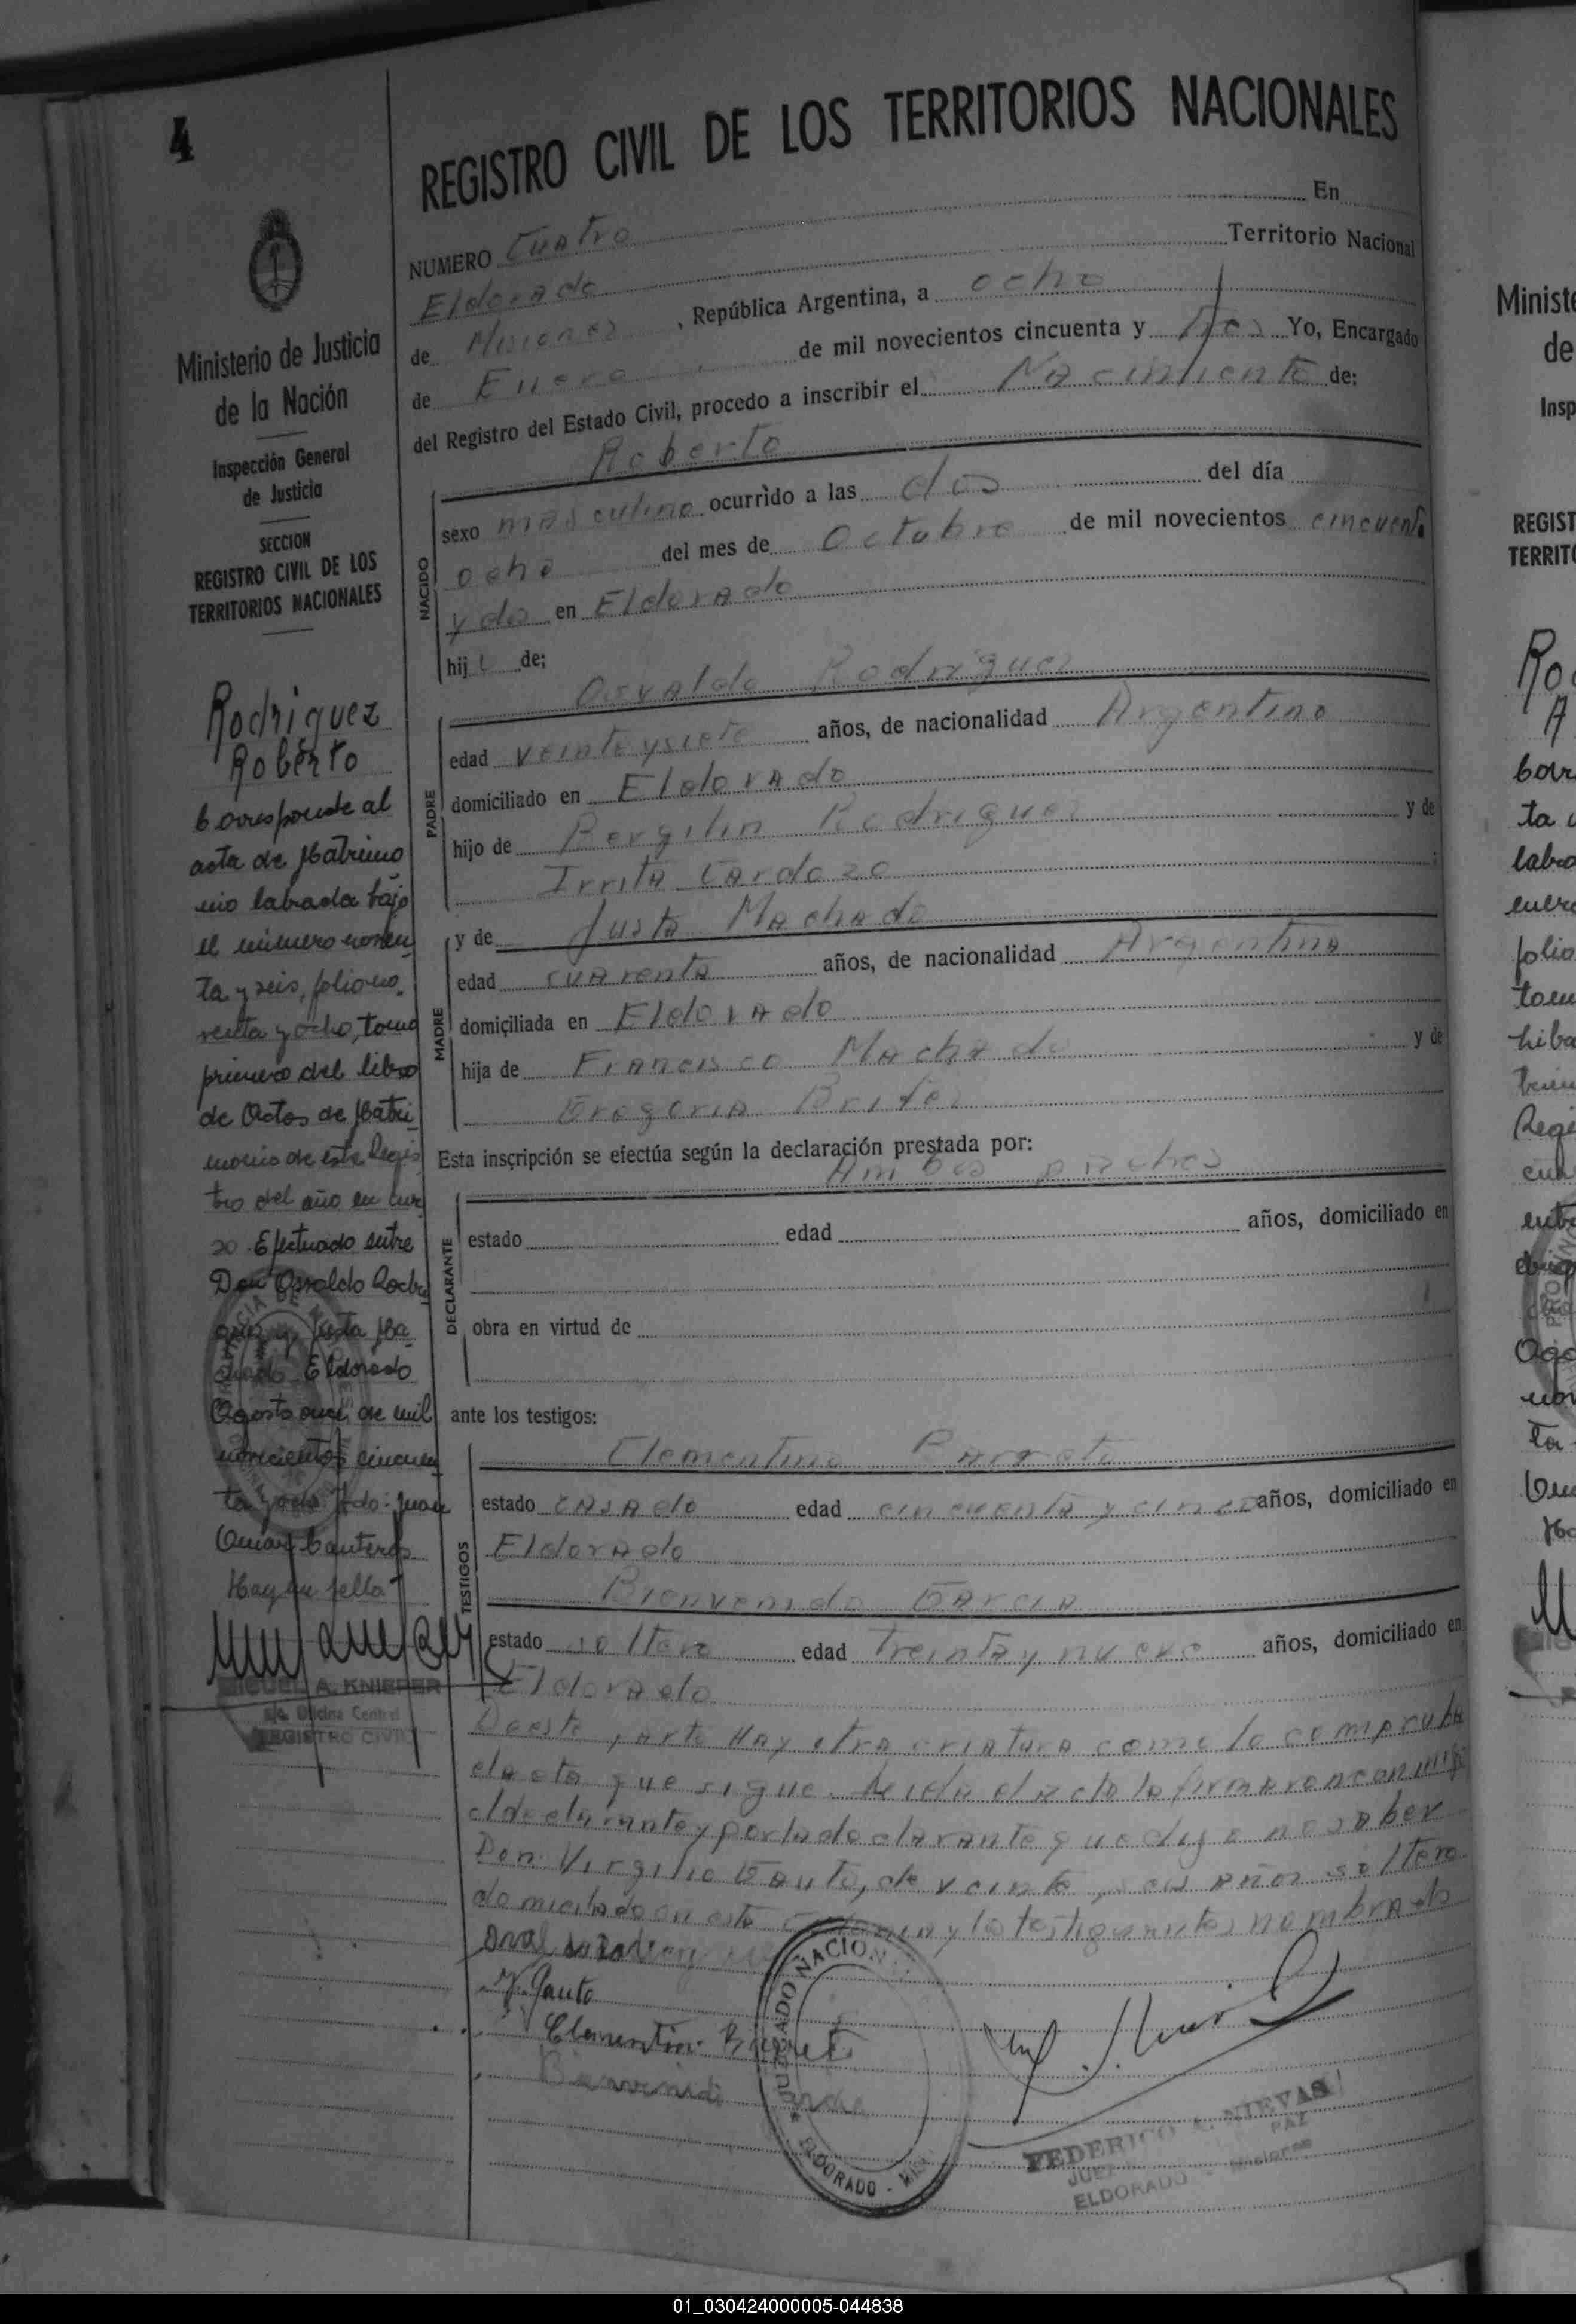 4
Ministerio de Justicia
de la Nación
Inspección General
de Justicia
SECCION
REGISTRO CIVIL DE LOS
TERRITORIOS NACIONALES
Rodriguez
Roberto
Corresponde al
acta de Matrimo
nio labrada bajo
el número noven
ta y seis, folio no
venta y ocho, tomo
primero del libro
de Actas de Matri
monio de este Regis
tro del año en cur
so. Efectuado entre
Don Osvaldo Rodri
guez y Justa Ma
chado. Eldorado
Agosto once de mil
novecientos cincuen
ta y Fdo: Juan
Omar Cauteros
Hay un sello
MIGUEL A. KNIEPER
Oficina Central
REGISTRO CIVIL
REGISTRO CIVIL DE LOS TERRITORIOS NACIONALES
NUMERO Cuatro En
Eldorado Territorio Nacional
de Misiones, República Argentina, a ocho
de Enero de mil novecientos cincuenta y tres Yo, Encargado
del Registro del Estado Civil, procedo a inscribir el Nacimiento de:
Roberto
NACIDO
sexo masculino ocurrido a las dos del día
ocho del mes de Octubre de mil novecientos cincuenta
y dos en Eldorado
hij de;
Osvaldo Rodriguez
PADRE
edad veinte y siete años, de nacionalidad Argentino
domiciliado en Eldorado
hijo de Bergilin Rodriguez y de
Irrita Cardozo
MADRE
y de Justa Machado
edad cuarenta años, de nacionalidad Argentina
domiciliada en Eldorado
hija de Francisco Machado y de
Gregoria Britez
Esta inscripción se efectúa según la declaración prestada por:
Ambos padres
DECLARANTE
estado edad años, domiciliado en
obra en virtud de
ante los testigos:
TESTIGOS
Clementino Barreto
estado casado edad cincuenta y cinco años, domiciliado en
Eldorado
Bienvenido Garcia
estado soltero edad treinta y nueve años, domiciliado en
Eldorado
De este parto hay otra criatura como lo comprueba
el acta que sigue. Leida el acta la firmaron conmigo
el declarante y por la declarante que dijo no saber
Don Virgilio Gauto, de veinte y seis años soltero
domiciliado en esta Colonia y los testigos antes nombrados
V. Gauto
Clementino Barreto
Bienvenido
JUZGADO NACION
ELDORADO - MIS.
FEDERICO A. NIEVAS
JUEZ PAZ
ELDORADO - Misiones
Ministe
de
Insp
REGIST
TERRIT
01_030424000005-044838